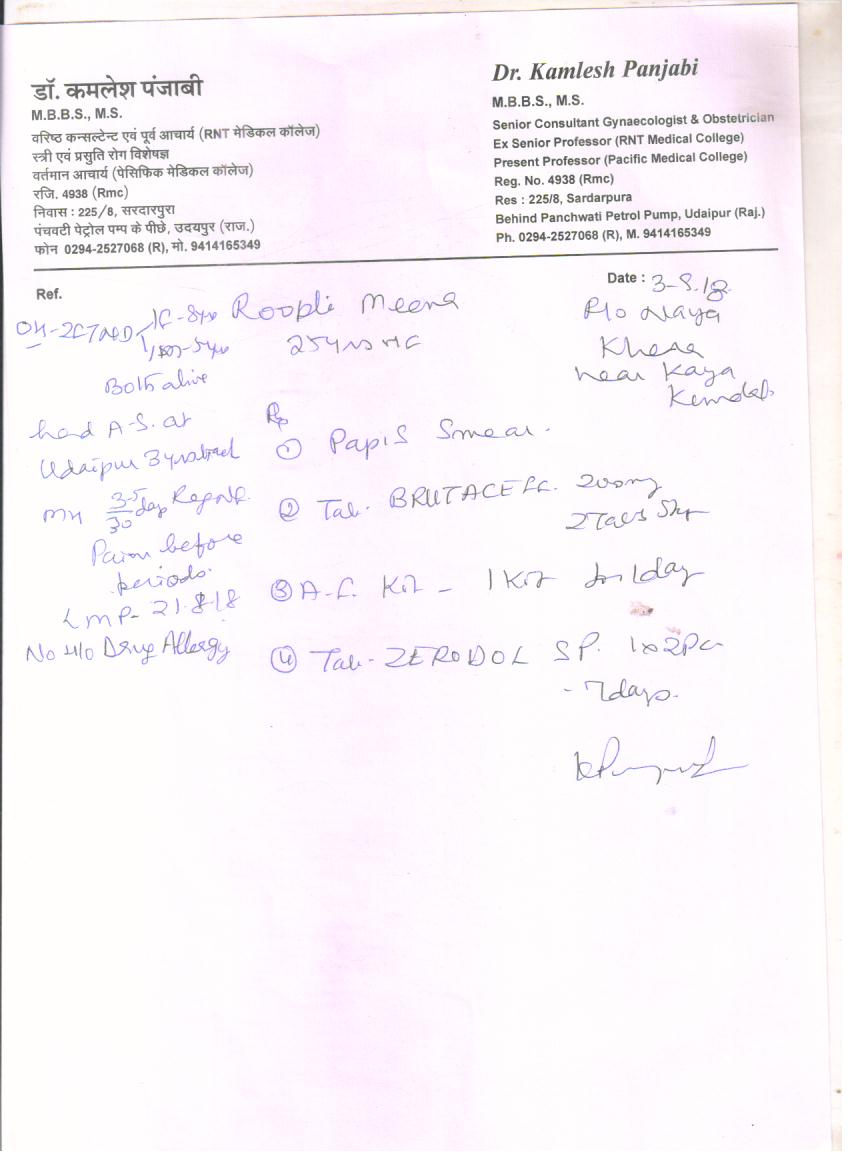 डॉ. कमलेश पंजाबी
M.B.B.S., M.S.
वरिष्ठ कन्सल्टेन्ट एवं पूर्व आचार्य (RNT मेडिकल कॉलेज)
स्त्री एवं प्रसुति रोग विशेषज्ञ
वर्तमान आचार्य (पेसिफिक मेडिकल कॉलेज)
रजि. 4938 (Rmc)
निवास : 225/8, सरदारपुरा
पंचवटी पेट्रोल पम्प के पीछे, उदयपुर (राज.)
फोन 0294-2527068 (R), मो. 9414165349
Dr. Kamlesh Panjabi
M.B.B.S., M.S.
Senior Consultant Gynaecologist & Obstetrician
Ex Senior Professor (RNT Medical College)
Present Professor (Pacific Medical College)
Reg. No. 4938 (Rmc)
Res : 225/8, Sardarpura
Behind Panchwati Petrol Pump, Udaipur (Raj.)
Ph. 0294-2527068 (R), M. 9414165349
Ref.
Date :
Roopli Meena
R/o Naya
Khera
near Kaya
Both alive
had A-S. at
Udaipur
MH 3-5/30 days
Pain before
periods.
LMP- 21.8.18
No H/o Drug Allergy
Rp
① Pap's Smear.
② Tab. 200mg
2 Tabs
③ Kit - 1 Kit for 1 day
④ Tab- ZERODOL SP.
- 7days.